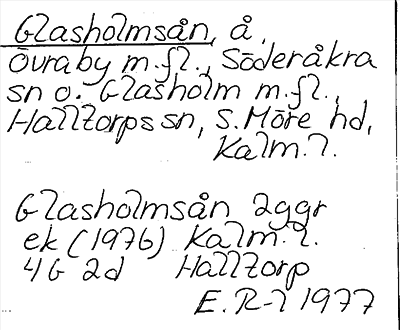 Glasholmsån, å,
Övraby m.fl., Söderåkra
sn o. Glasholm m.fl.,
Halltorps sn, S. Möre hd,
Kalm. l.
Glasholmsån 2ggr
ek (1976) Kalm. l.
4G 2d Halltorp
E. R-l 1977